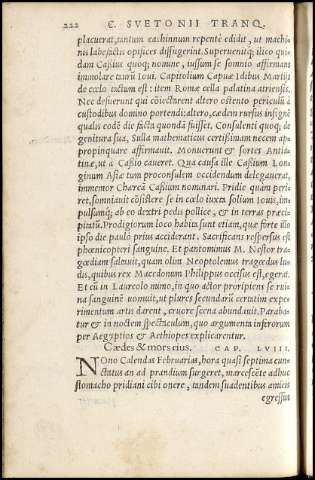 222 C. SVETONII TRANQ.
placuerat, tantum cachinnum repentè edidit, ut machi-
nis labefactis opifices diffugerint. Superuenitq; ilico qui-
dam Caßius quoq; nomine, iussum se somnio affirmans
immolare taurũ Ioui. Capitolium Capuæ Idibus Martijs
de cœlo tactum est: item Romæ cella palatina atriensis.
Nec defuerunt qui cõiectarent altero ostento periculũ à
custodibus domino portendi: altero, cædem rursus insignẽ
qualis eodẽ die facta quondã fuisset. Consulenti quoq; de
genitura sua, Sulla mathematicus certißimam necem ap-
propinquare affirmauit. Monuerunt & sortes Antia-
tinæ, ut à Caßio caueret. Qua causa ille Caßium Lon-
ginum Asiæ tum proconsulem occidendum delegauerat,
immemor Chæreã Caßium nominari. Pridie quàm peri-
ret, somniauit cõsistere se in cœlo iuxta solium Iouis, im-
pulsumq; ab eo dextri pedis pollice, & in terras præci-
pitatũ. Prodigiorum loco habita sunt etiam, quæ forte illo
ipso die paulò prius acciderant. Sacrificans respersus est
phœnicopteri sanguine. Et pantomimus M. Nestor tra-
gœdiam saltauit, quam olim Neoptolemus tragœdus lu-
dis, quibus rex Macedonum Philippus occisus est, egerat.
Et cũ in Laureolo mimo, in quo actor proripiens se rui-
na sanguinẽ uomuit, ut plures secundarũ certatim experi-
mentum artis darent, cruore scena abundauit. Paraba-
tur & in noctem spectaculum, quo argumenta inferorum
per Aegyptios & Aethiopes explicarentur.
Cædes & mors eius. CAP. LVIII.
NOno Calendas Februarias, hora quasi septima cun-
ctatus an ad prandium surgeret, marcẽte adhuc
stomacho pridiani cibi onere, tandem suadentibus amicis
egressus